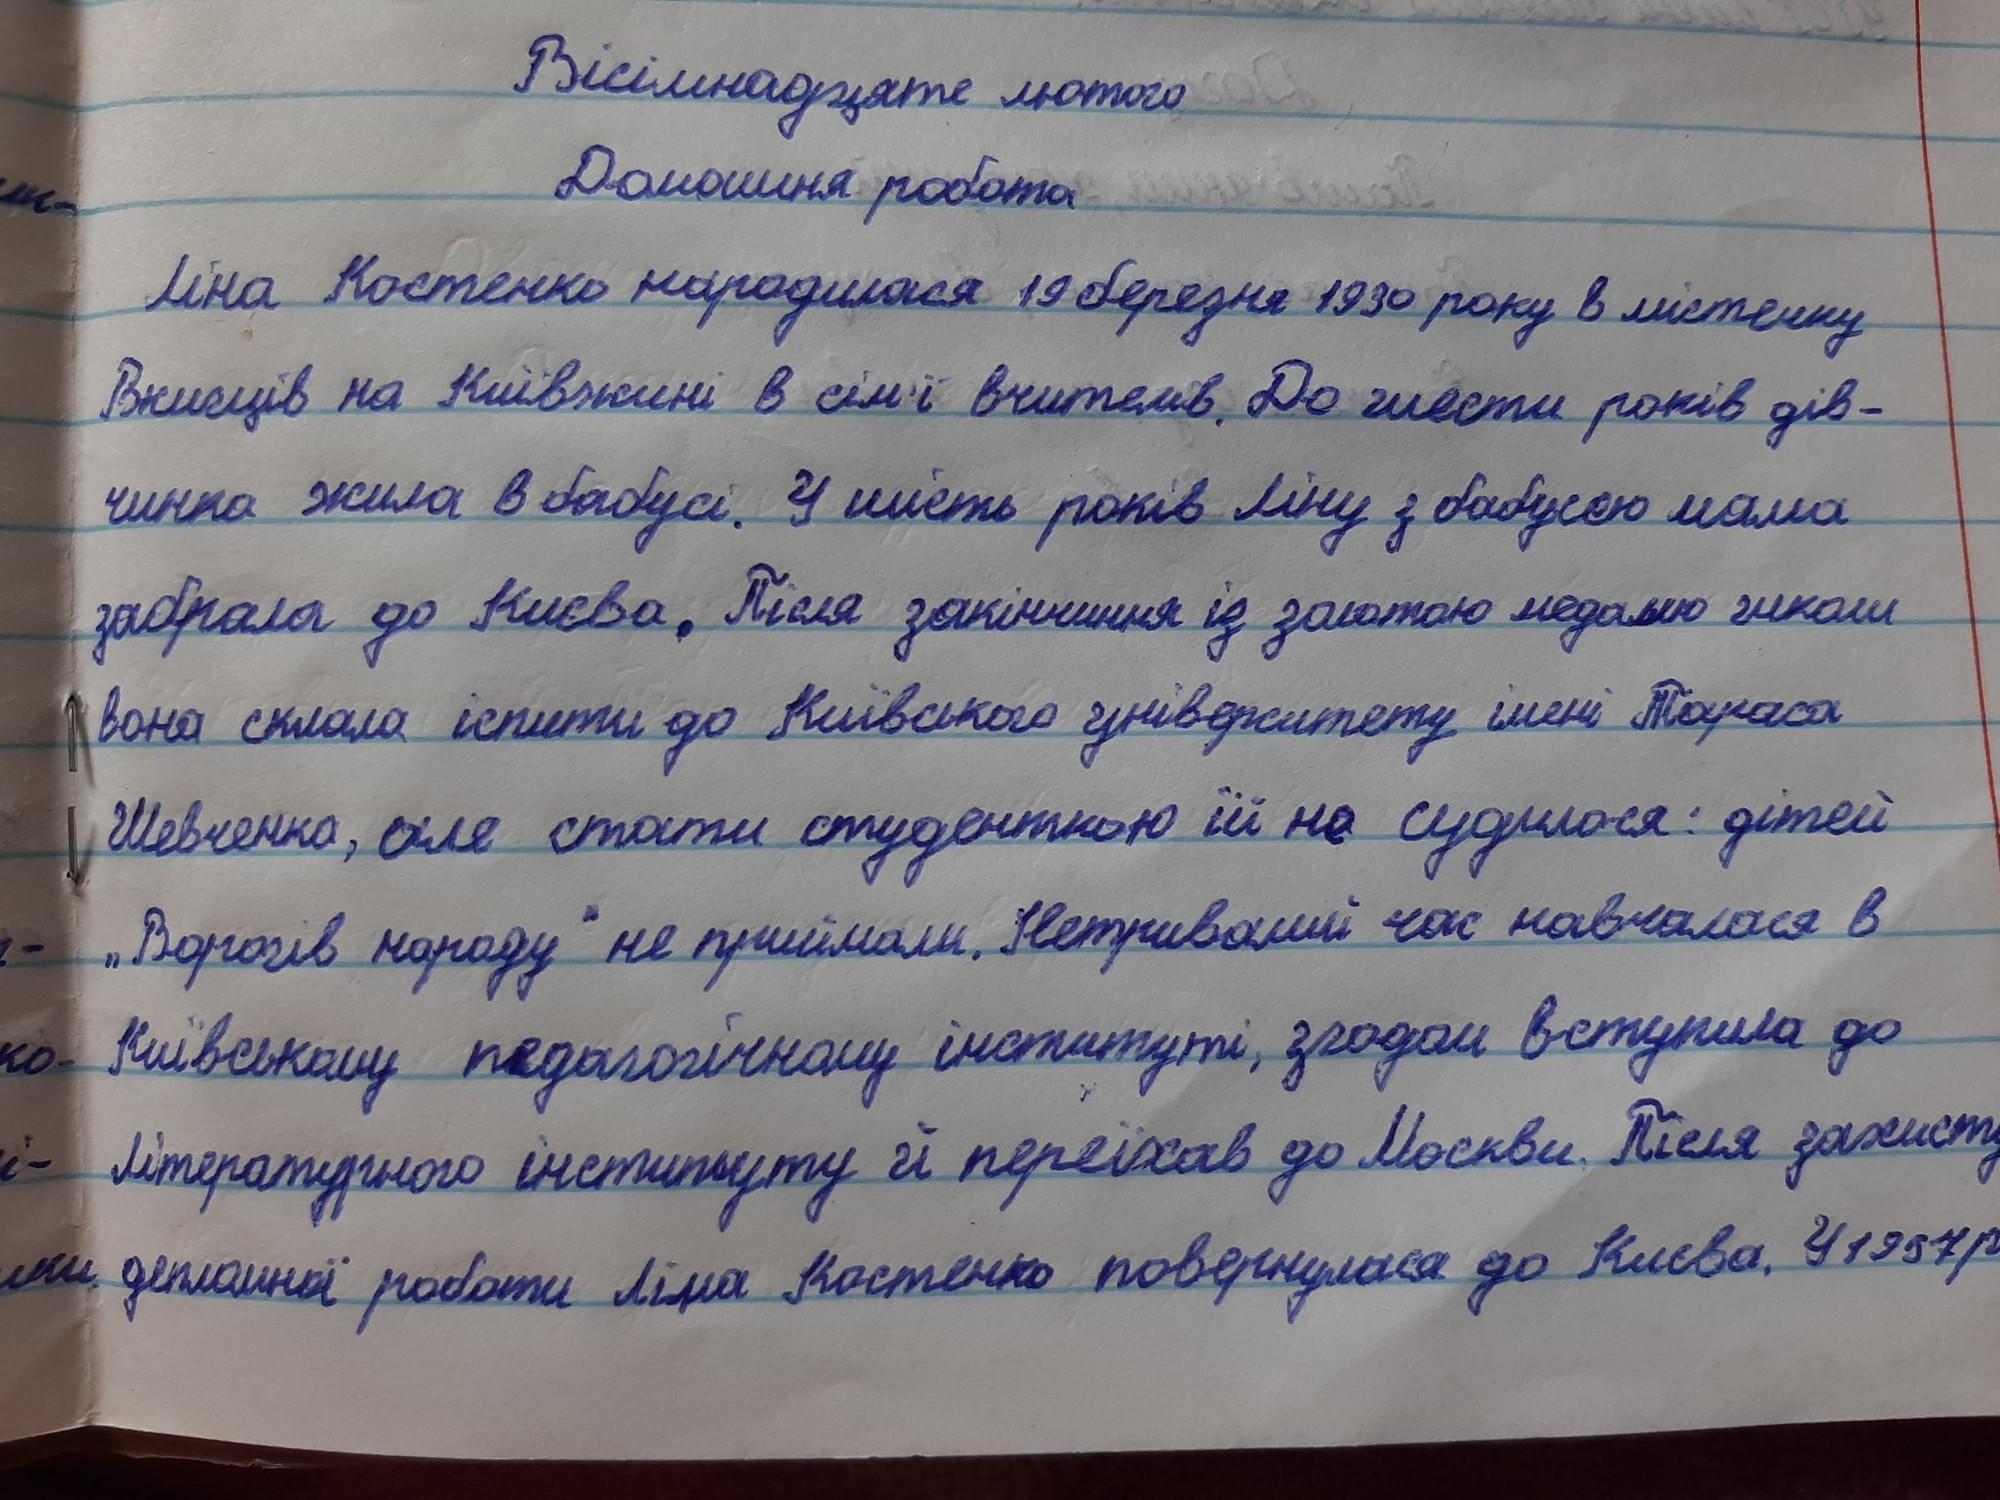 Вісімнадцяте лютого
Домашня робота
Ліна Костенко народилася 19 березня 1930 року в містечку
Ржищів на Київжині в сім'ї вчителів. До шести років дів-
чинка жила в бабусі. У шість років Ліну з бабусею мама
забрала до Києва. Після закінчиння із золотою медаллю школи
вона склала іспити до Київського університету імені Тараса
Шевченка, але стати студенткою їй не судилося: дітей
„Ворогів народу" не приймали. Нетривалий час навчалася в
Київському педагогічному інституті, згодом вступила до
Літературного інституту й переїхав до Москви. Після захисту
депломної роботи Ліна Костенко повернулася до Києва. У 1957 р